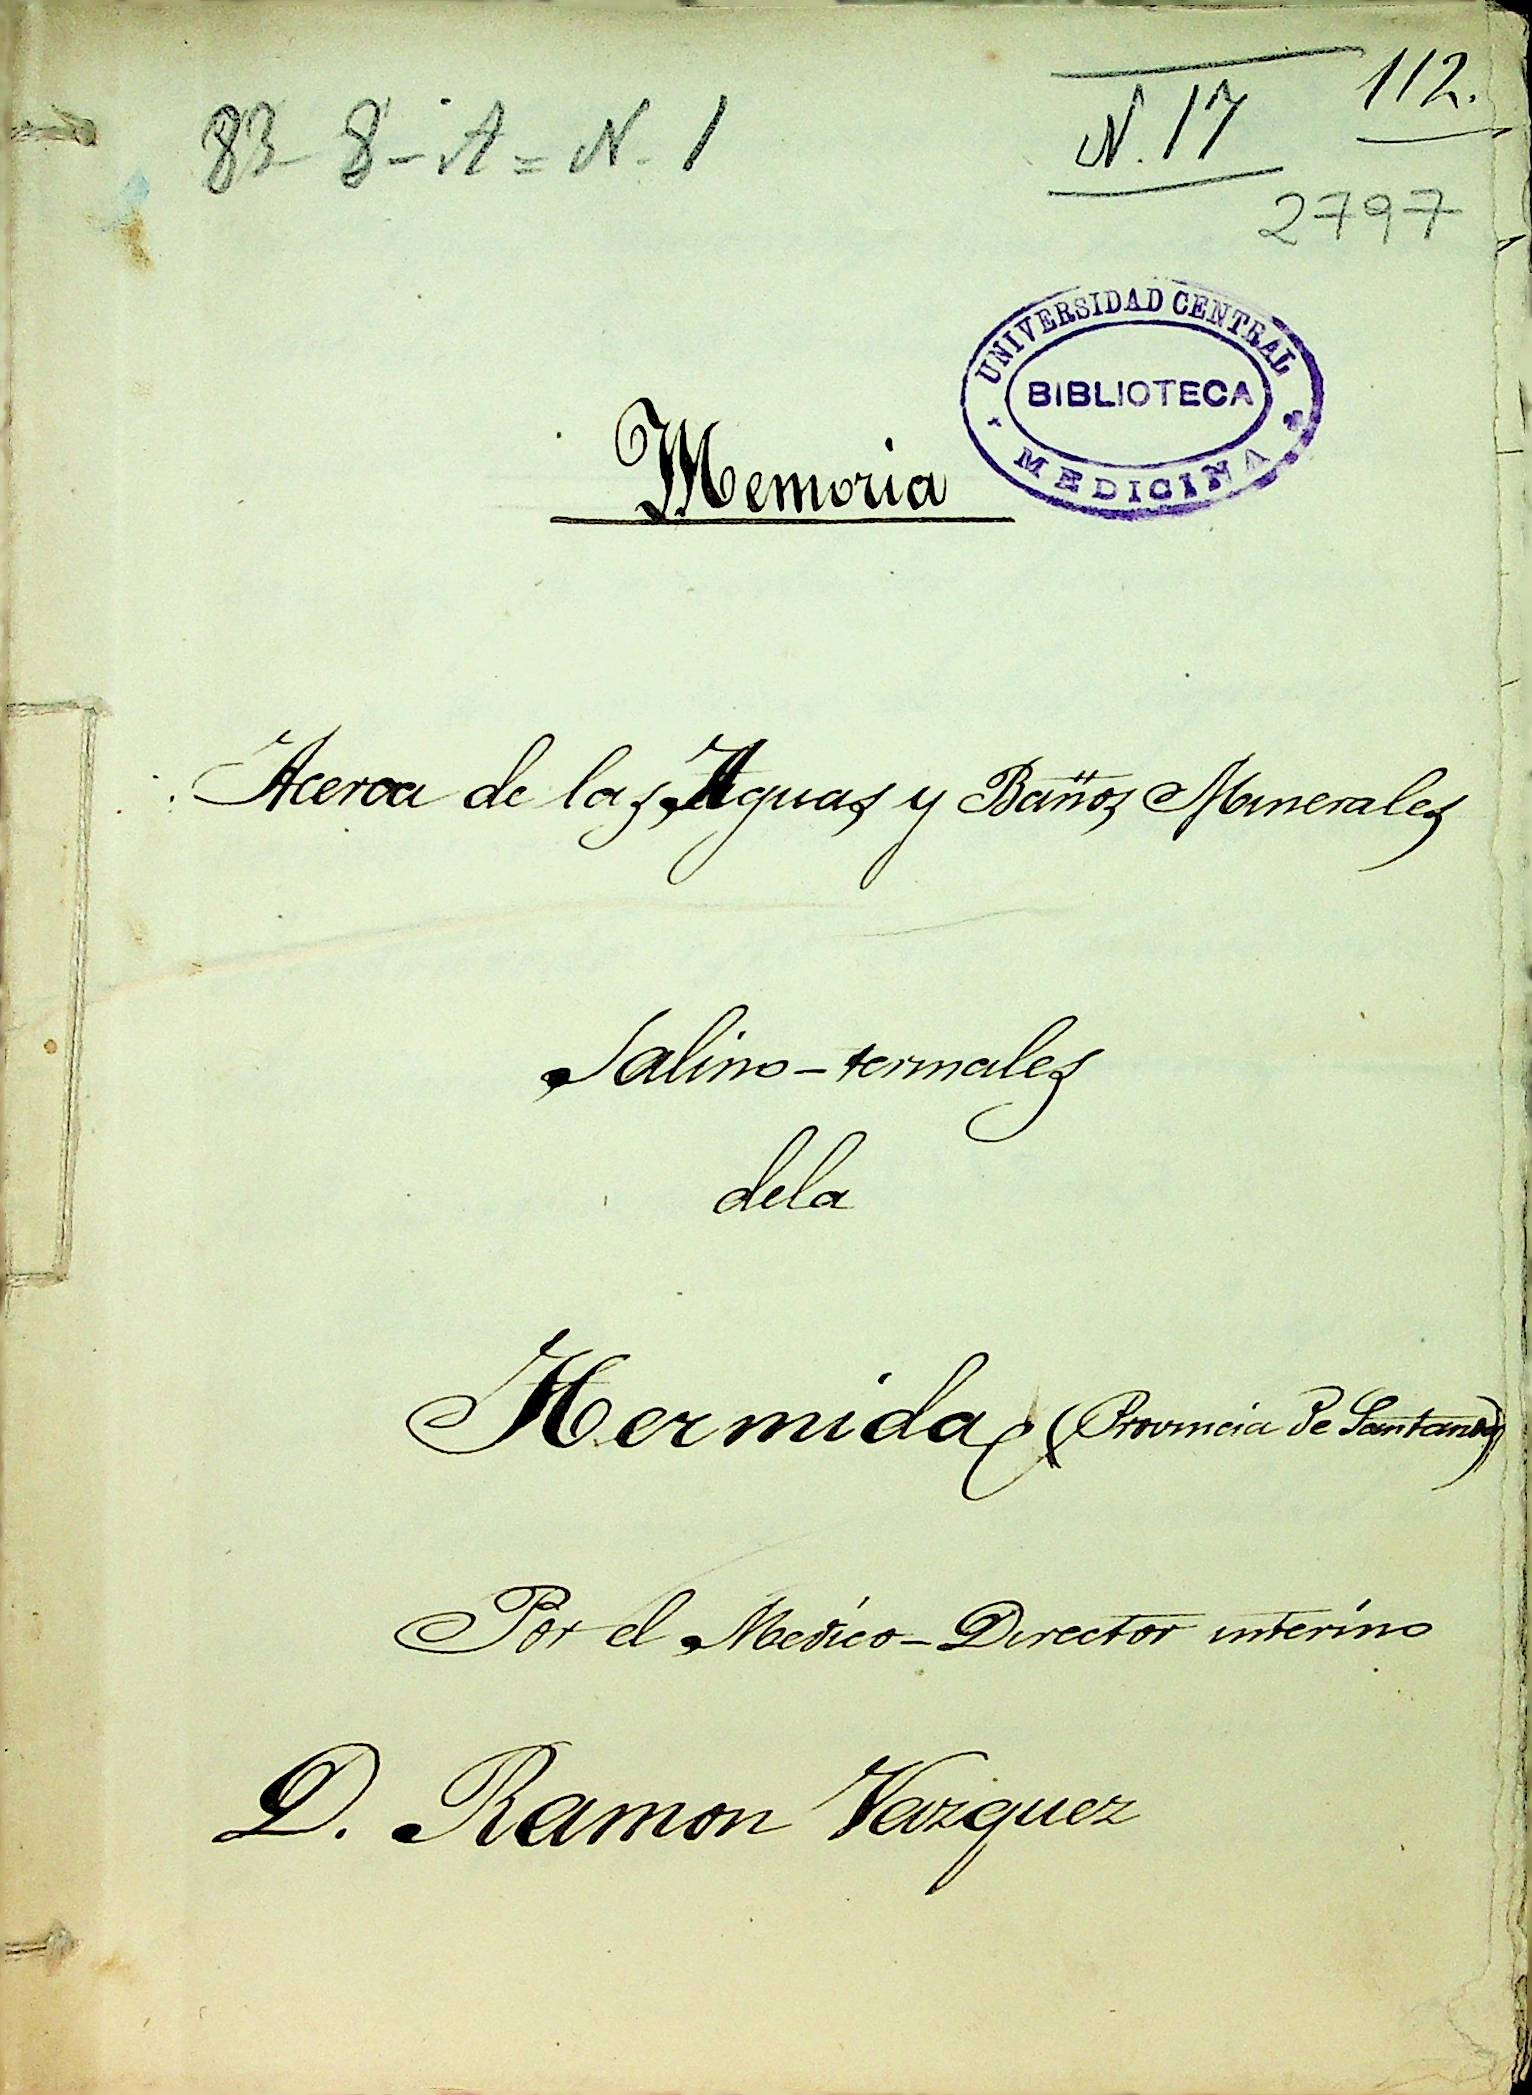 83 8-A=N.1
N. 17
112.
2797
UNIVERSIDAD CENTRAL
BIBLIOTECA
MEDICINA
Memoria
Acerca de las Aguas y Baños Minerales
Salino-termales
dela
Hermida, (Provincia de Santander)
Por el Medico-Director interino
D. Ramon Vazquez